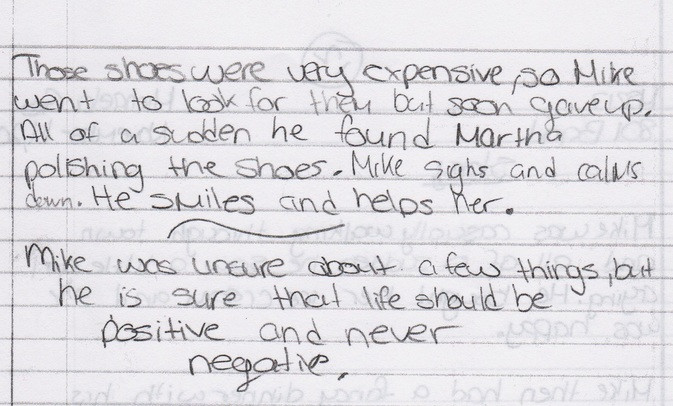 Those shoes were very expensive, so Mike
went to look for them but soon gave up.
All of a sudden he found Martha
polishing the shoes. Mike sighs and calms
down. He smiles and helps her.
Mike was unsure about a few things, but
he is sure that life should be
positive and never
negative.